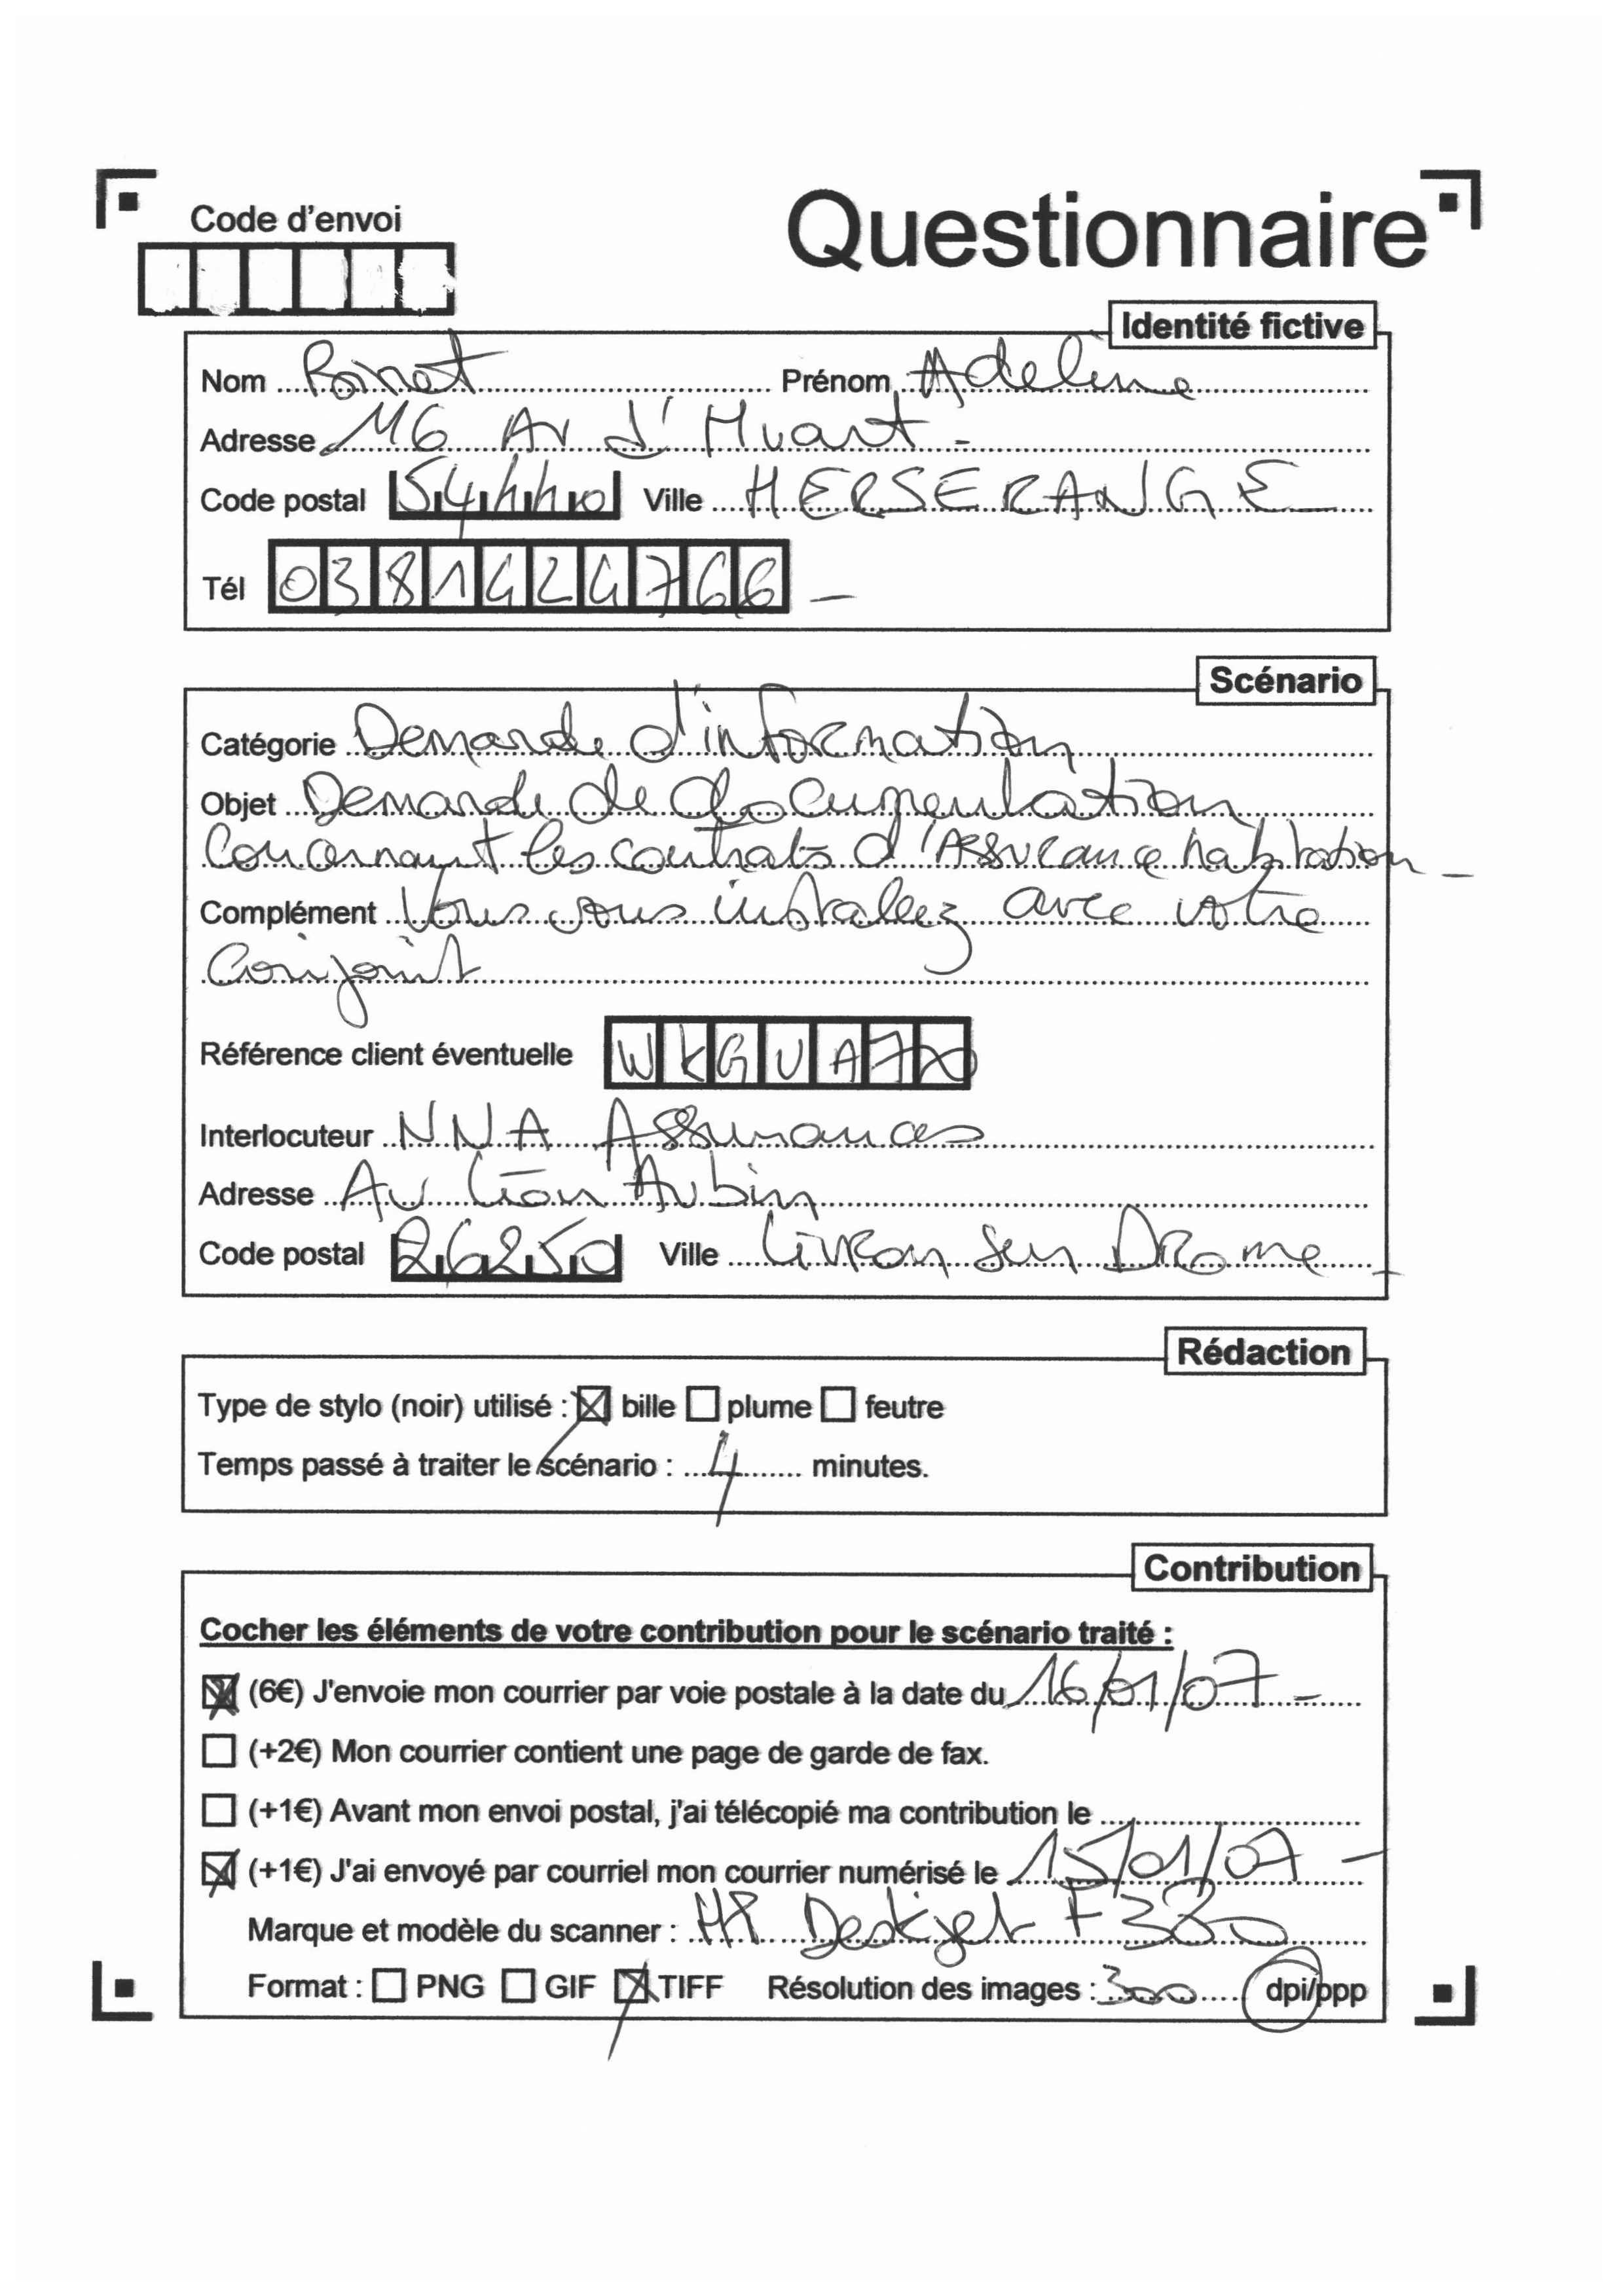 Code d'envoi
Questionnaire
Identité fictive
Nom Poinot Prénom Adeline
Adresse 116 Av d'Huart -
Code postal 54440 Ville HERSERANGE
Tél 0381424766 -
Scénario
Catégorie Demande d'information
Objet Demande de documentation
Concernant les contrats d'Assurance habitation -
Complément Vous vous installez avec votre
Conjoint
Référence client éventuelle WKGUA7X
Interlocuteur NNA Assurances
Adresse Av Léon Aubin
Code postal 26250 Ville Livron sur Drome -
Rédaction
Type de stylo (noir) utilisé : bille plume feutre
Temps passé à traiter le scénario : 4 minutes.
Contribution
Cocher les éléments de votre contribution pour le scénario traité :
(6€) J'envoie mon courrier par voie postale à la date du 16/01/07 -
(+2€) Mon courrier contient une page de garde de fax.
(+1€) Avant mon envoi postal, j'ai télécopié ma contribution le
(+1€) J'ai envoyé par courriel mon courrier numérisé le 15/01/07 -
Marque et modèle du scanner : HP Deskjet F380
Format : PNG GIF TIFF Résolution des images : 300 dpi/ppp